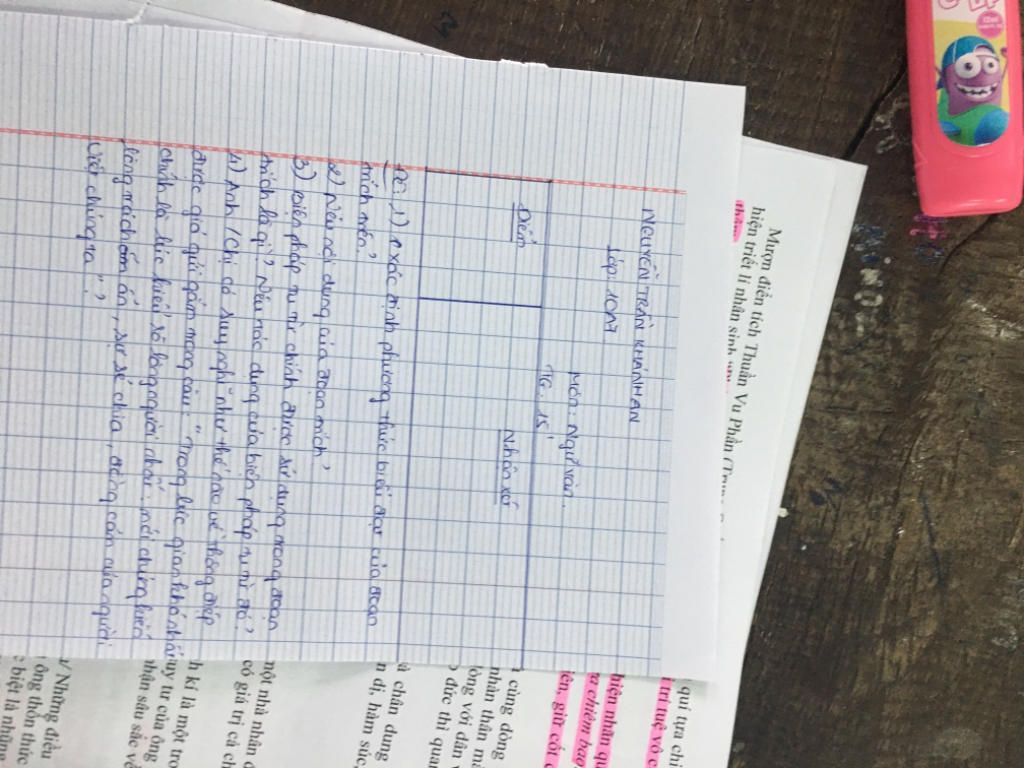 NGUYỄN TRẦN KHÁNH AN
Lớp: 10A7
Môn: Ngữ văn.
TG: 15'
Điểm
Nhận xét
ĐỀ: 1) Xác định phương thức biểu đạt của đoạn
trích trên?
2) Nêu nội dung của đoạn trích?
3) Biện pháp tu từ chính được sử dụng trong đoạn
trích là gì? Nêu tác dụng của biện pháp tu từ đó?
4) Anh / Chị có suy nghĩ như thế nào về thông điệp
được giả gửi gắm trong câu: "Trong lúc gian khó nhất
chính là lúc hiểu rõ lòng người nhất. mới chứng kiến
lòng trách ẩn, sự sẻ chia, đồng cảm của người
Việt chúng ta"?
Mượn điển tích Thuần Vu Phần
hiện triết lí nhân sinh
thâm
quí tựa chi
í trí tuệ vô c
hiện nhân qu
a chiêm bao
iên, giũ cốt c
cùng dòng
nhân thân mà
lòng với dân v
đức thì quan
à chân dung
n dị, hàm súc,
một nhà nhân đ
có giá trị cả ch
h kí là một tro
uy tư của ông
nhân sâu sắc về
Những điều
ông thốn thức
biệt là những